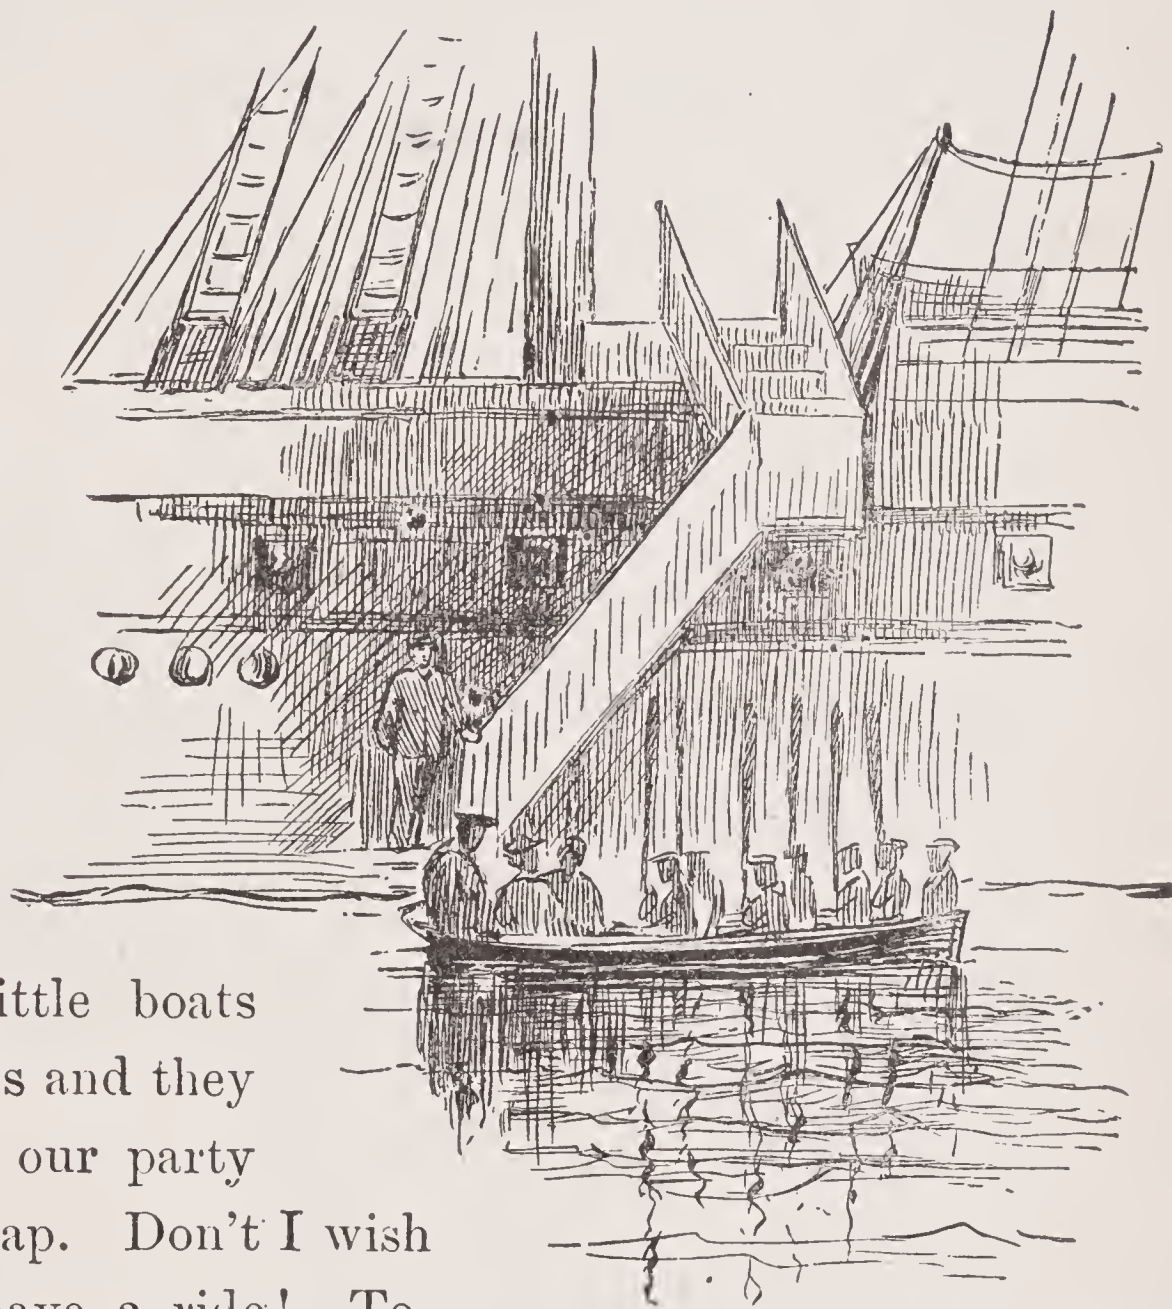 ittle boats
s and they
our party
ap. Don't I wish
ave a ride! To